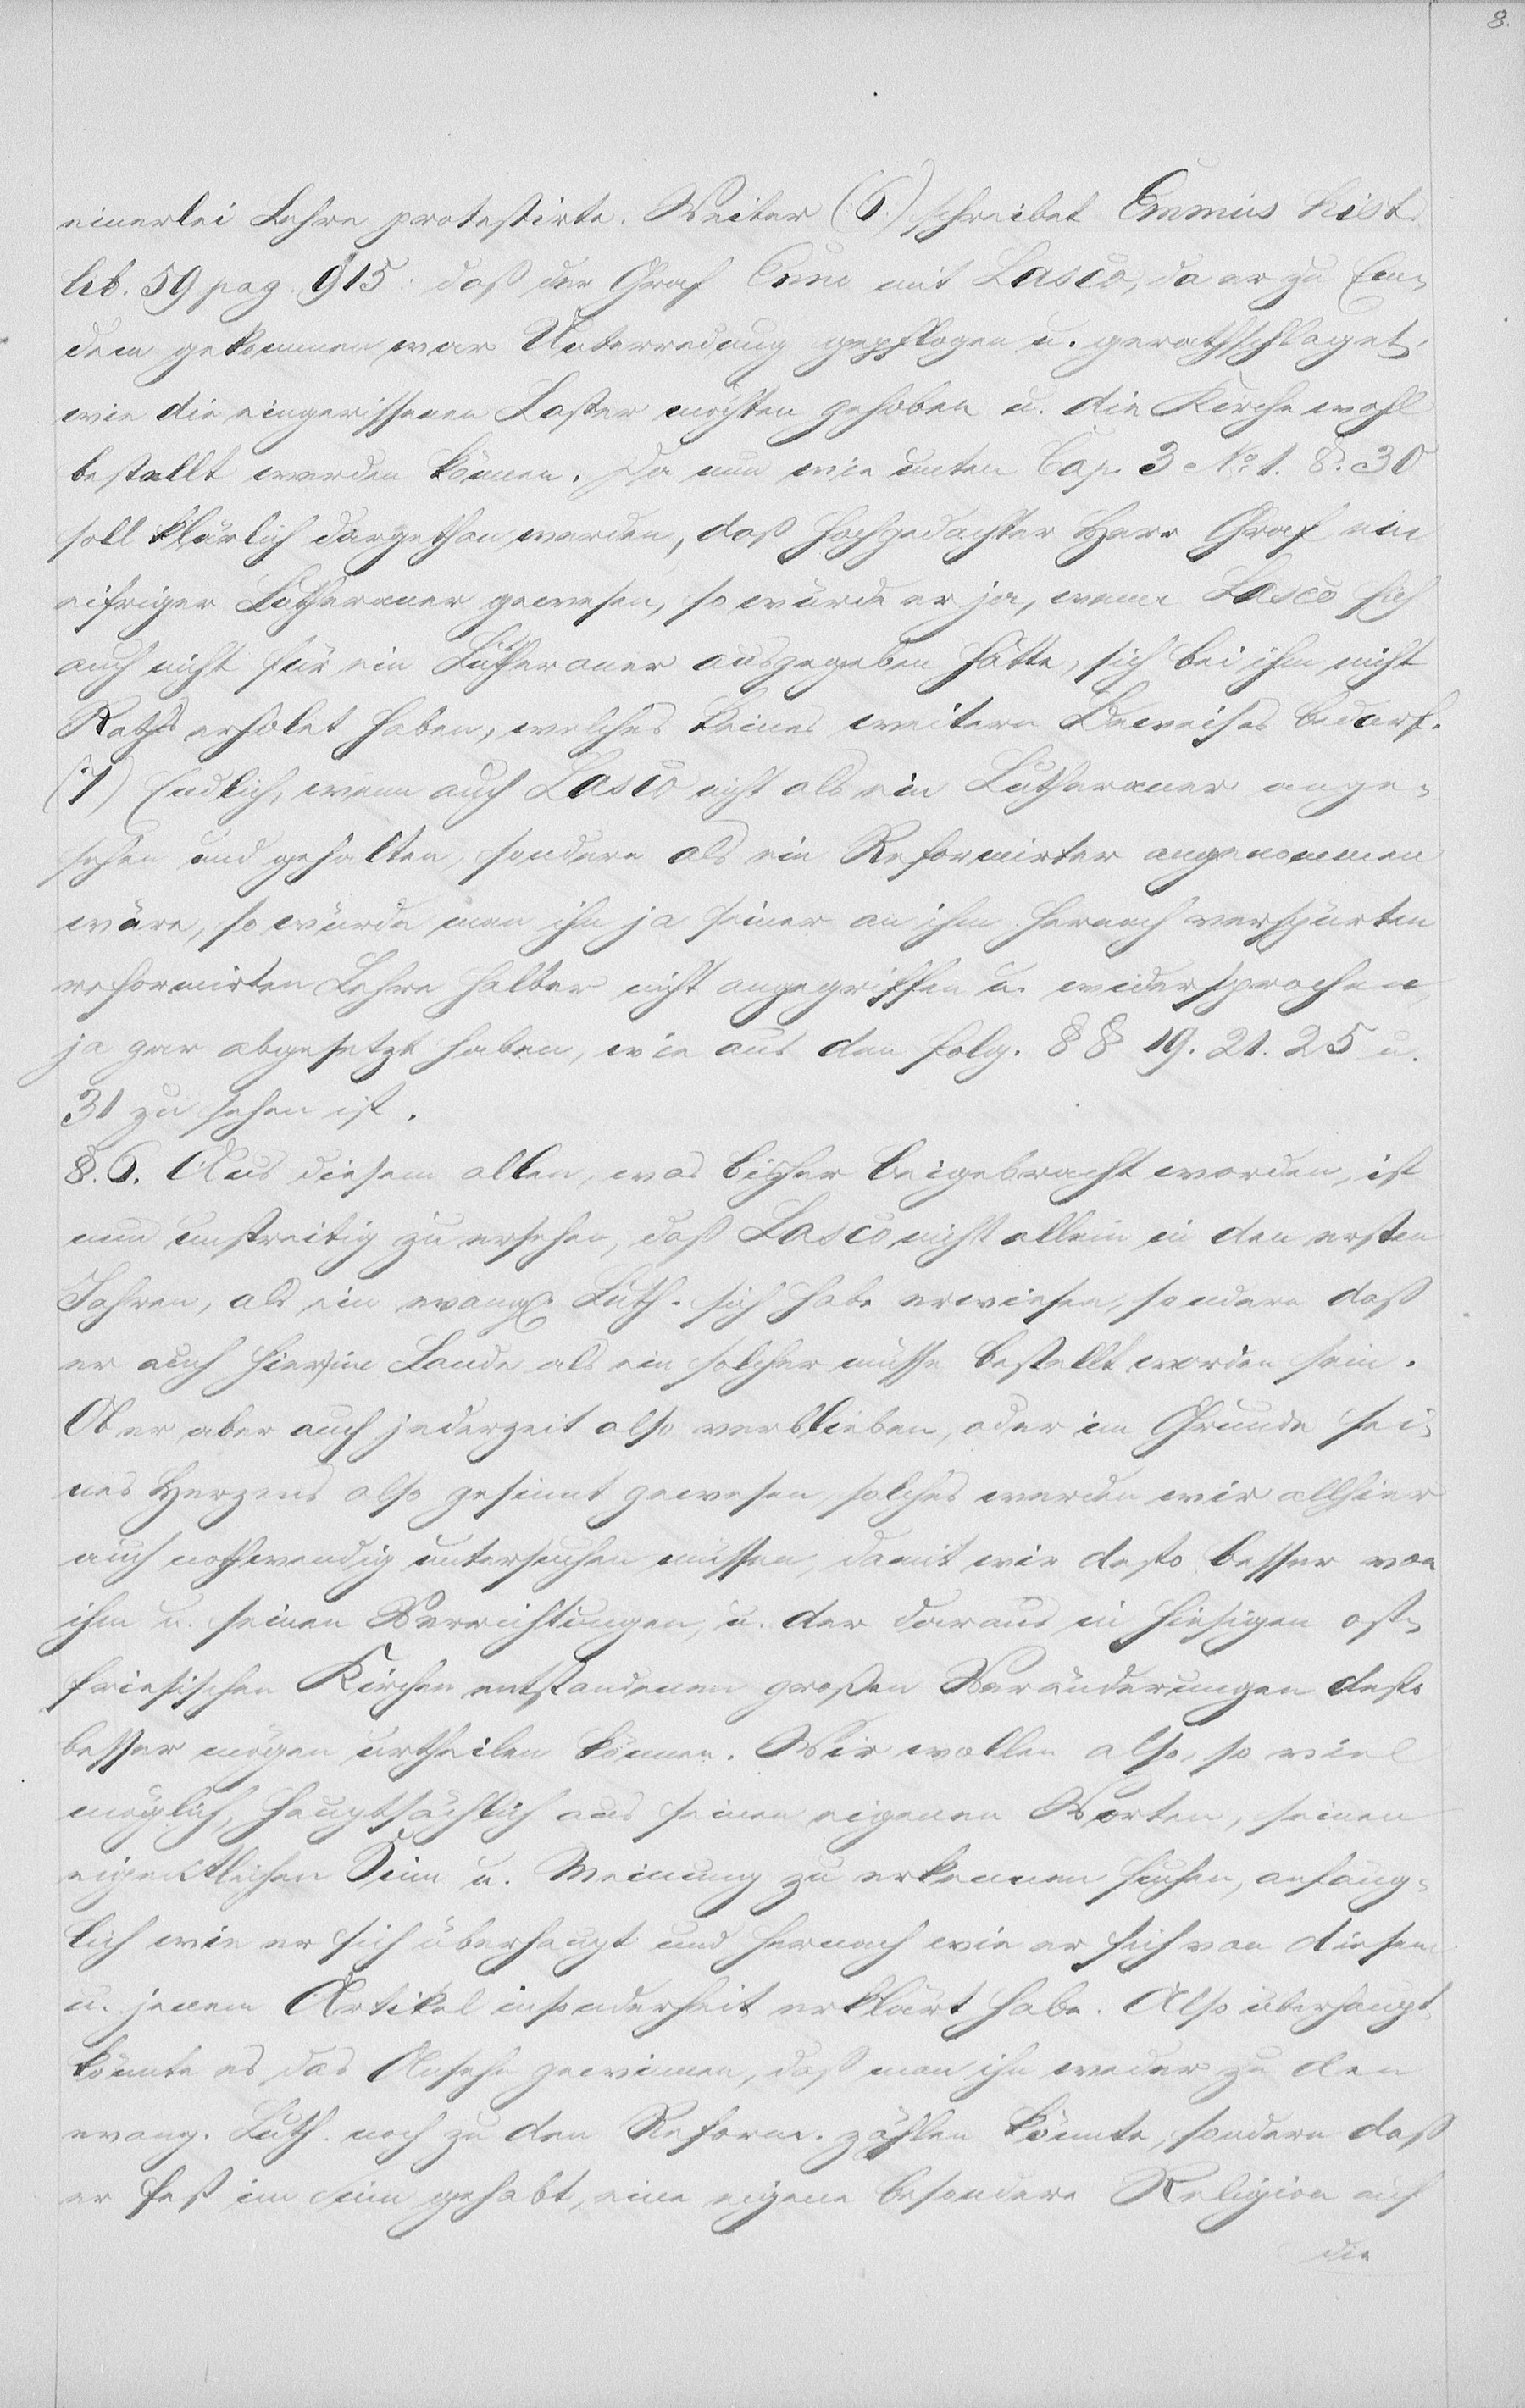 8.
einerlei Lehre protestirte. Weiter (6.) schreibet Emmius hist.
lib. 59 pag. 915: daß der Graf Enno mit Lasco, da er zu Em-
dem gekommen war Unterredung gepflogen u. gerathschlaget,
wie die eingerissenen Laster möchten gehoben u. die Kirche wohl
bestellt werden können. Da nun wie unten Cap. 3 No 1. §. 30
soll klärlich dargethan werden, daß hochgedachter Herr Graf ein
eifriger Lutheraner gewesen, so würde er ja, wenn Lasco sich
auch nicht für ein Lutheraner ausgegeben hätte, sich bei ihm nicht
Raths erholet haben, welches keines weitern Beweises bedarf.
(7) Endlich, wenn auch Lasco nicht als ein Lutheraner ange-
sehen und gehalten, sondern als ein Reformirter angenommen
wäre, so würde man ihn ja seiner an ihm hernach verspürten
reformirten Lehre halber nicht angegriffen u. widersprochen,
ja gar abgesetzt haben, wie aus den folg. §§ 19. 21. 25 u.
31 zu sehen ist.
§. 6. Aus diesem allen, was bisher beigebracht worden, ist
nun unstreitig zu ersehen, daß Lasco nicht allein in den ersten
Jahren, als ein evang. Luth. sich habe erwiesen, sondern daß
er auch hier im Lande als ein solcher müsse bestellt worden sein.
Ob er aber auch jederzeit also verblieben, oder im Grunde sei-
nes Herzens also gesinnt gewesen, solches werden wir allhier
auch nothwendig untersuchen müssen, damit wir desto besser von
ihm u. seinen Verrichtungen, u. der daraus in hiesigen ost-
friesischen Kirchen entstandenen großen Veränderungen desto
besser mögen urtheilen können. Wir wollen also, so viel
möglich, hauptsächlich aus seinen eigenen Worten, seinen
eigentlichen Sinn u. Meinung zu erkennen suchen, anfäng-
lich wie er sich überhaupt und hernach wie er sich von diesem
u. jenem Artikel insonderheit erklärt habe. Also überhaupt
könnte es das Ansehn gewinnen, daß man ihn weder zu den
evang. Luth. noch zu den Reform. zählen könnte, sondern daß
er fest im Sinn gehabt, eine eigene besondere Religion auf
die